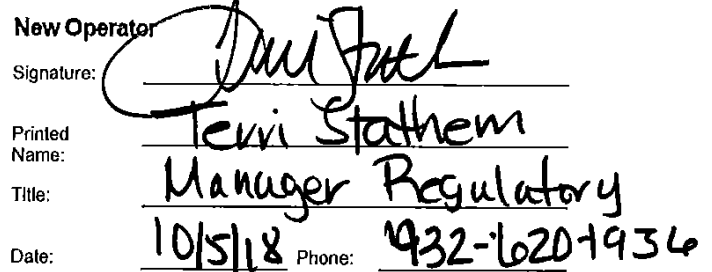 New Operator
Signature:
Printed Name: Terri Stathem
Title: Manager Regulatory
Date: 10/5/18 Phone: 432-620-1936